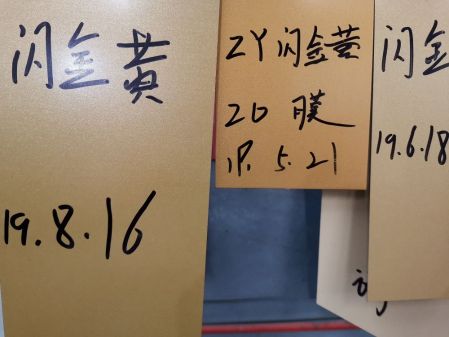 闪金黄
19.8.16
ZY闪金黄
20 膜
19.5.21
闪金
19.6.18